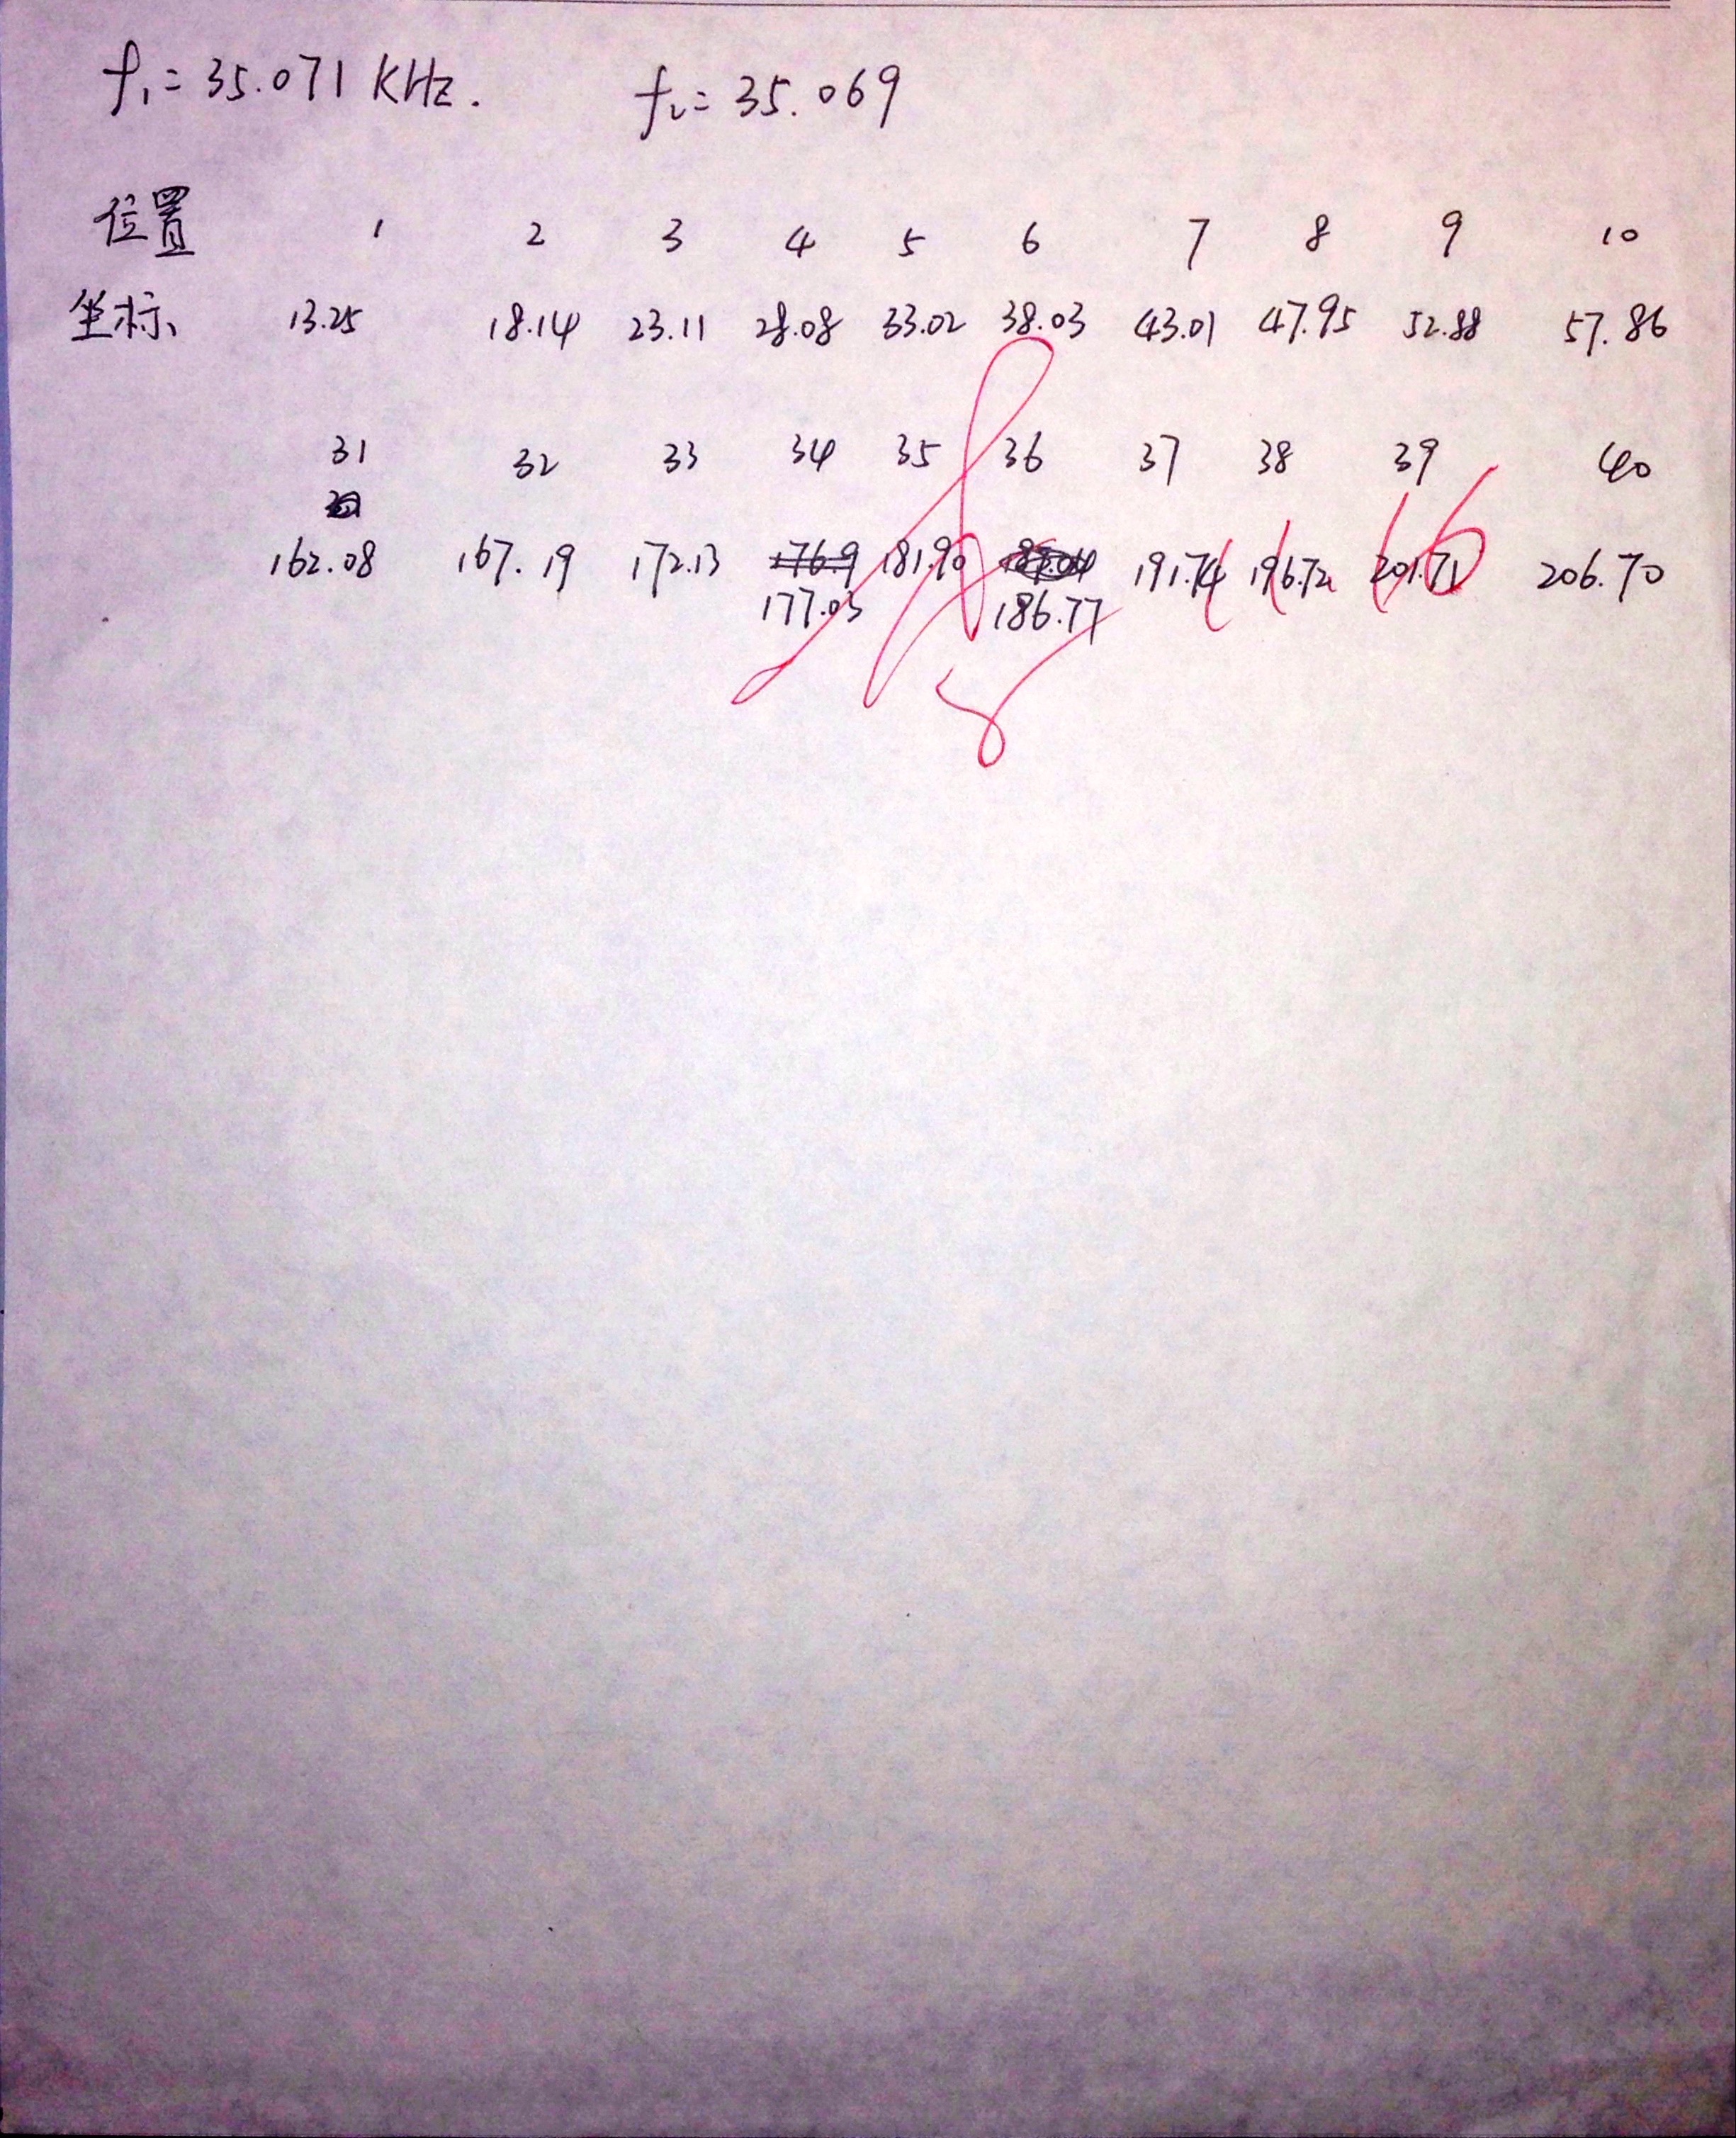 f₁=35.071 KHz. f₂=35.069
位置 1 2 3 4 5 6 7 8 9 10
坐标 13.25 18.14 23.11 28.08 33.02 38.03 43.01 47.95 52.88 57.86
31 32 33 34 35 36 37 38 39 40
162.08 167.19 172.13 176.9 181.90 191.74 196.72 201.71 206.70
177.03 186.77